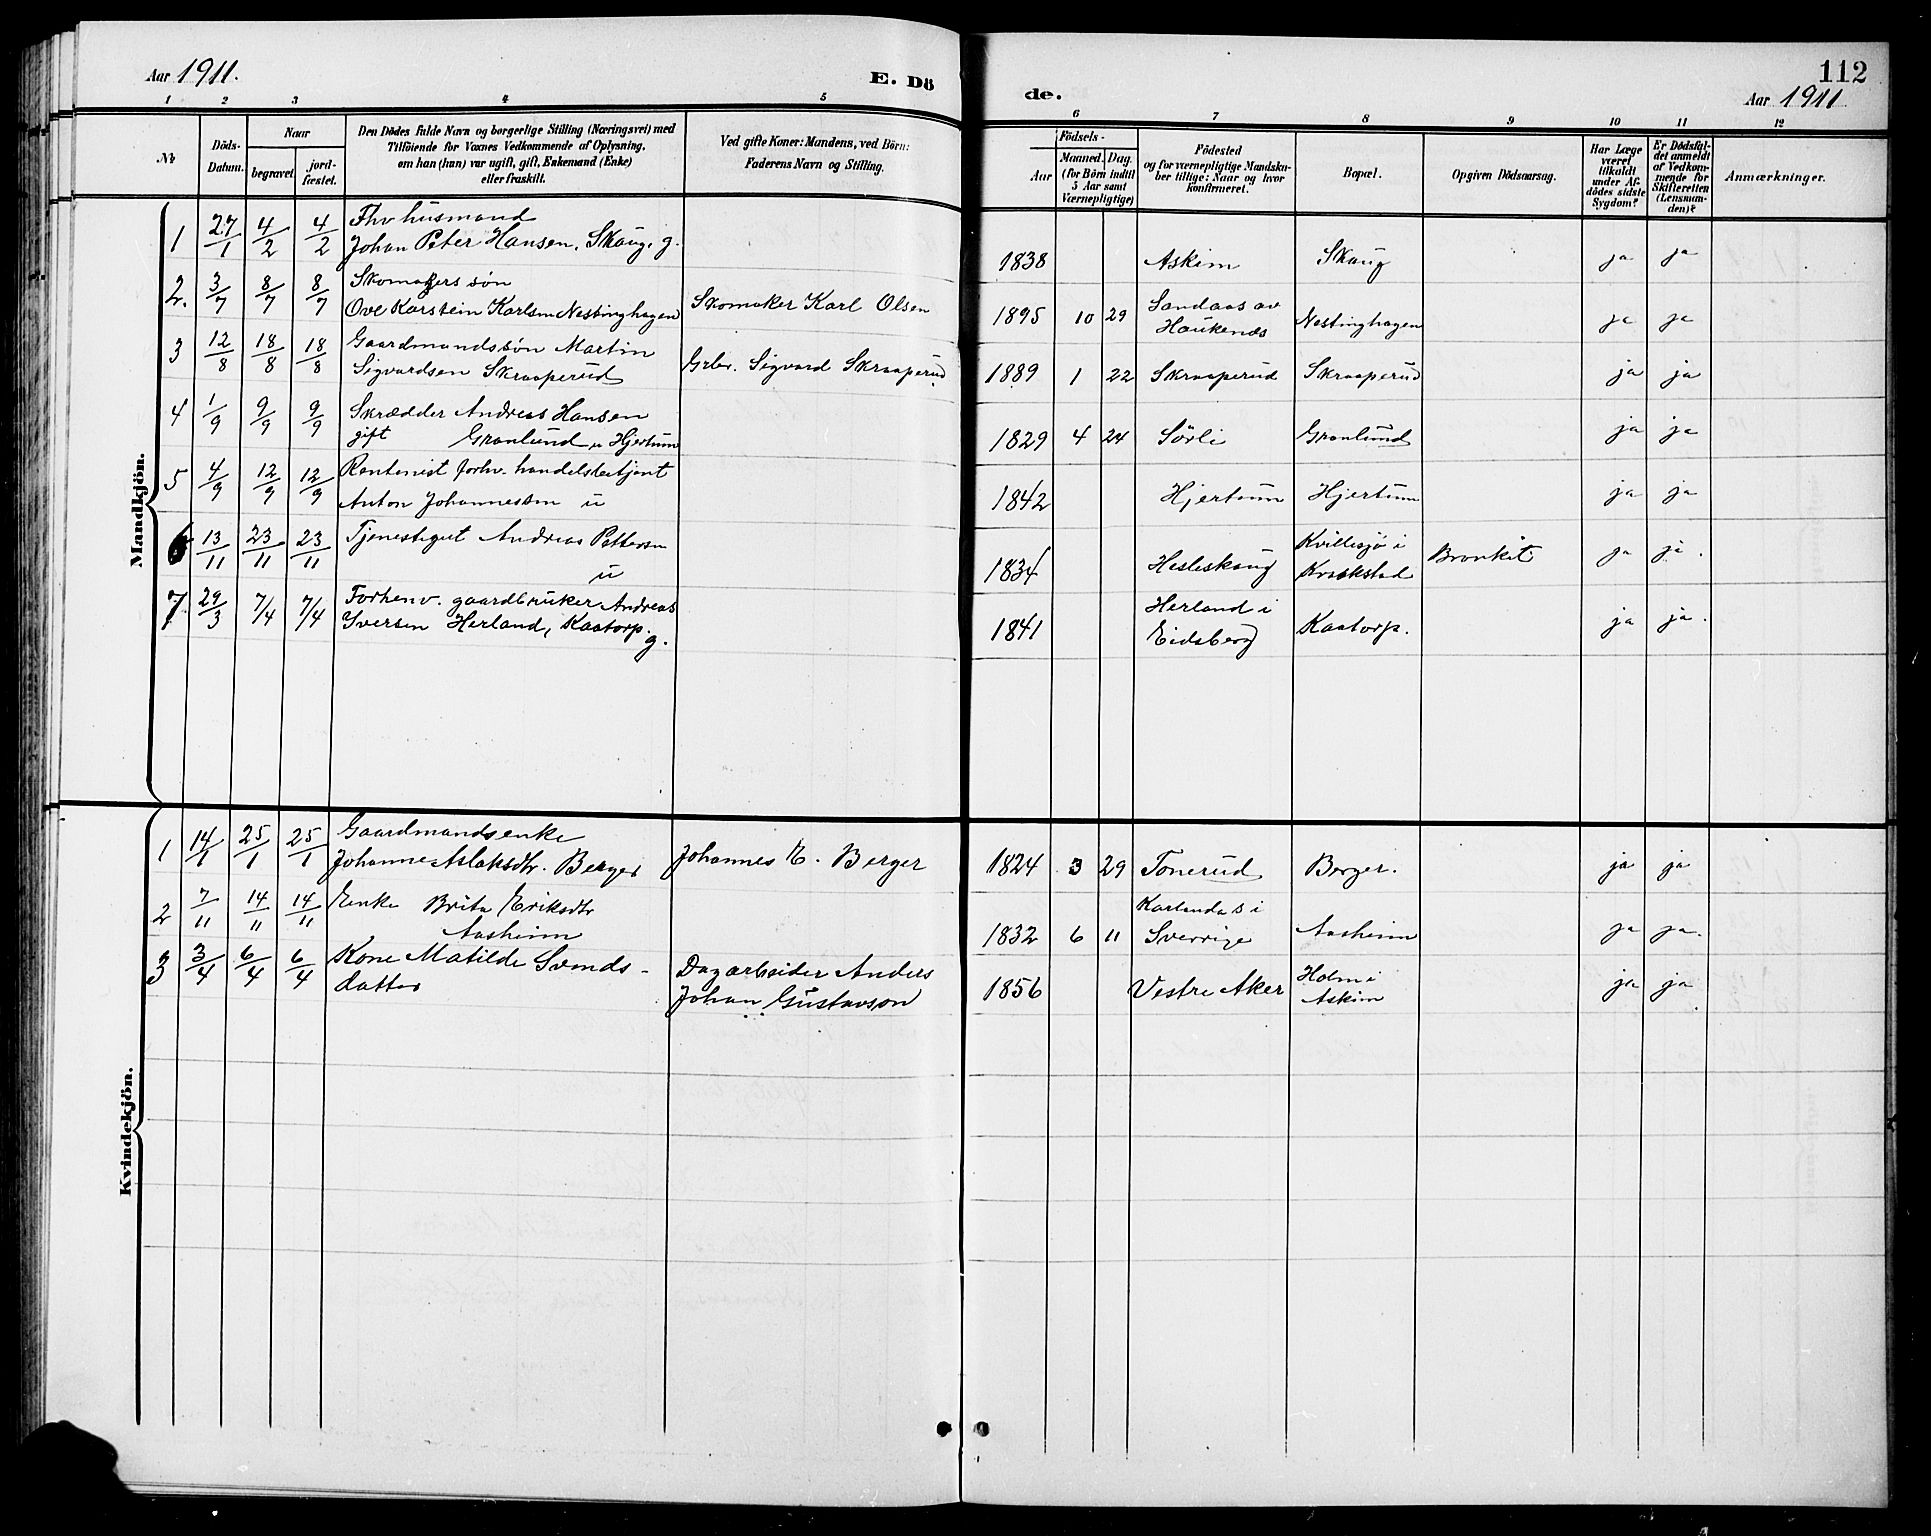 Aar 1911.
E. Dö
de.
112
Aar 1911
1 2 3 4 5
6 7 8 9 10 11 12
No
Döds-
Datum.
Naar
begravet.
jord-
fæstet.
Den Dödes fulde Navn og borgerlige Stilling (Næringsvei) med
Tilföiende for Voxnes Vedkommende af Oplysning,
om han (hun) var ugift, gift, Enkemand (Enke)
eller fraskilt.
Ved gifte Koner: Mandens, ved Börn:
Faderens Navn og Stilling.
Födsels-
Aar
Maaned. Dag.
(for Börn indtil
5 Aar samt
Værnepligtige)
Födested
og for værnepligtige Mandska-
ber tillige: Naar og hvor
konfirmeret.
Bopæl.
Opgiven Dödsaarsag.
Har Læge
været
tilkaldt
under Af-
dödes sidste
Sygdom?
Er Dödsfal-
det anmeldt
af Vedkom-
mende for
Skifteretten
(Lensman-
den)?
Anmærkninger.
Mandkjön.
1 27/1 4/2 4/2 Fhv husmand
Johan Peter Hansen, Skaug, g. 1838 Askim Skaug ja ja
2. 3/7 8/7 8/7 Skomagers søn
Ove Karstein Karlsen Nestinghagen Skomaker Karl Olsen 1895 10 29 Sandaas av
Haukenes Nestinghagen ja ja
3 12/8 18/8 18/8 Gaardmandssøn Martin
Sigvardsen Skraaperud Grbr. Sigvard Skraaperud 1889 1 22 Skraaperud Skraaperud ja ja
4 1/9 9/9 9/9 Skrædder Andreas Hansen
gift Granlund u Hjertum 1829 4 24 Sörli Granlund ja ja
5 4/9 12/9 12/9 Rentenist forhv. handelsbetjent
Anton Johannessen u 1842 Hjertum Hjertum ja ja
6 13/11 23/11 23/11 Tjenestegut Andreas Pettersen
u 1834 Hesleskaug Kvillesjø i
Kraakstad Bronkit ja ja.
7. 29/3 7/4 7/4 Forhenv. gaardbruker Andreas
Iversen Herland, Kaatorp.
g. 1841 Herland i
Eidsberg Kaatorp. ja ja.
Kvindekjön.
1 14/1 25/1 25/1 Gaardmandsenke
Johanne Aslaksdtr. Berger Johannes E. Berger 1824 3 29 Tonerud Berger. ja ja
2 7/11 14/11 14/11 Enke Brita Eriksdtr
Aasheim 1832 6 11 Karlanda S i
Sverrige Aasheim ja ja.
3 3/4 6/4 6/4 Kone Matilde Svends-
datter Dagarbeider Anders
Johan Gustavson 1856 Vestre Aker Holm i
Askim ja ja